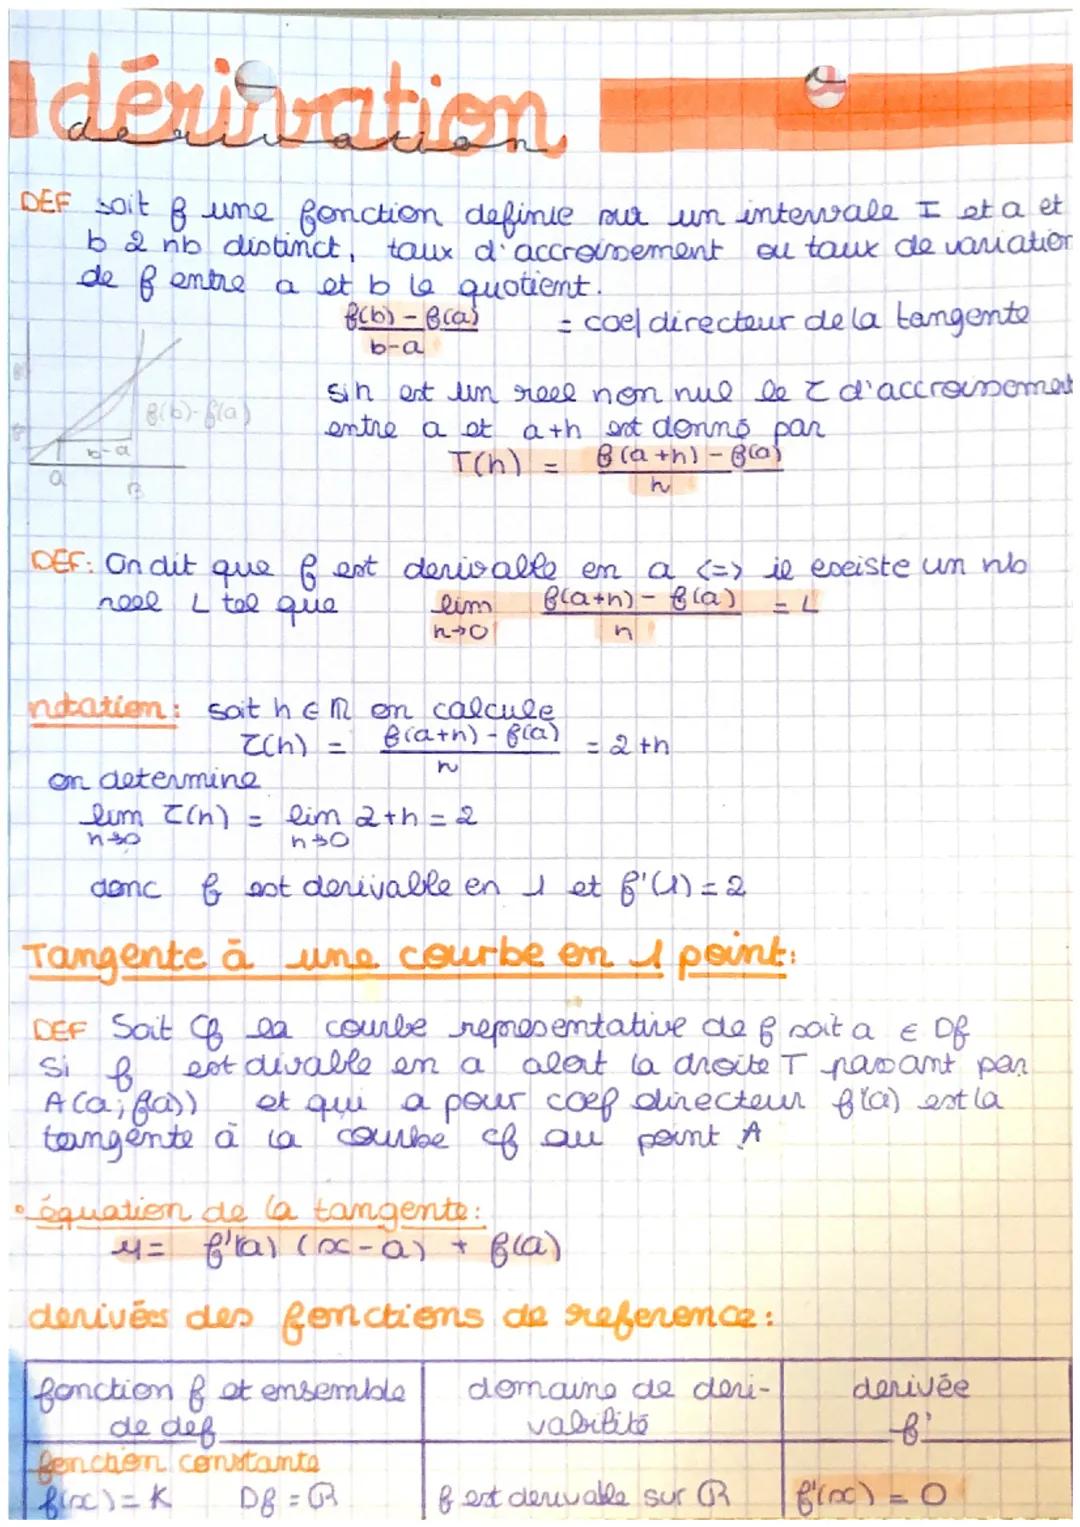 dérivation
derivation
DEF soit f une fonction definie sur un intervale I et a et
b 2 nb distinct, taux d'accroissement ou taux de variation
de f entre a et b le quotient.
f(b)-f(a) / b-a = coef directeur de la tangente
si h est un reel non nul le τ d'accroissement
f(b)-f(a)
entre a et a+h est donné par
b-a
T(h) = f(a+h)-f(a) / h
a
B
DEF: On dit que f est derivable en a <=> il existe un nb
reel L tel que lim h→0 f(a+h)-f(a) / h = L
notation: soit h ∈ R on calcule
τ(h) = f(a+h)-f(a) / h = 2+h
on determine
lim τ(h) = lim 2+h = 2
h→0 h→0
donc f est derivable en 1 et f'(1)=2
Tangente à une courbe en 1 point:
DEF Soit Cf la courbe representative de f soit a ∈ Df
si f est divable en a alort la droite T passant par
A(a;f(a)) et qui a pour coef directeur f'(a) est la
tangente à la courbe Cf au point A
• équation de la tangente:
y= f'(a) (x-a) + f(a)
derivées des fonctions de reference:
fonction f et ensemble domaine de deri- derivée
de def vabilité f'
fonction constante
f(x)=K Df=R f est derivable sur R f'(x)=0